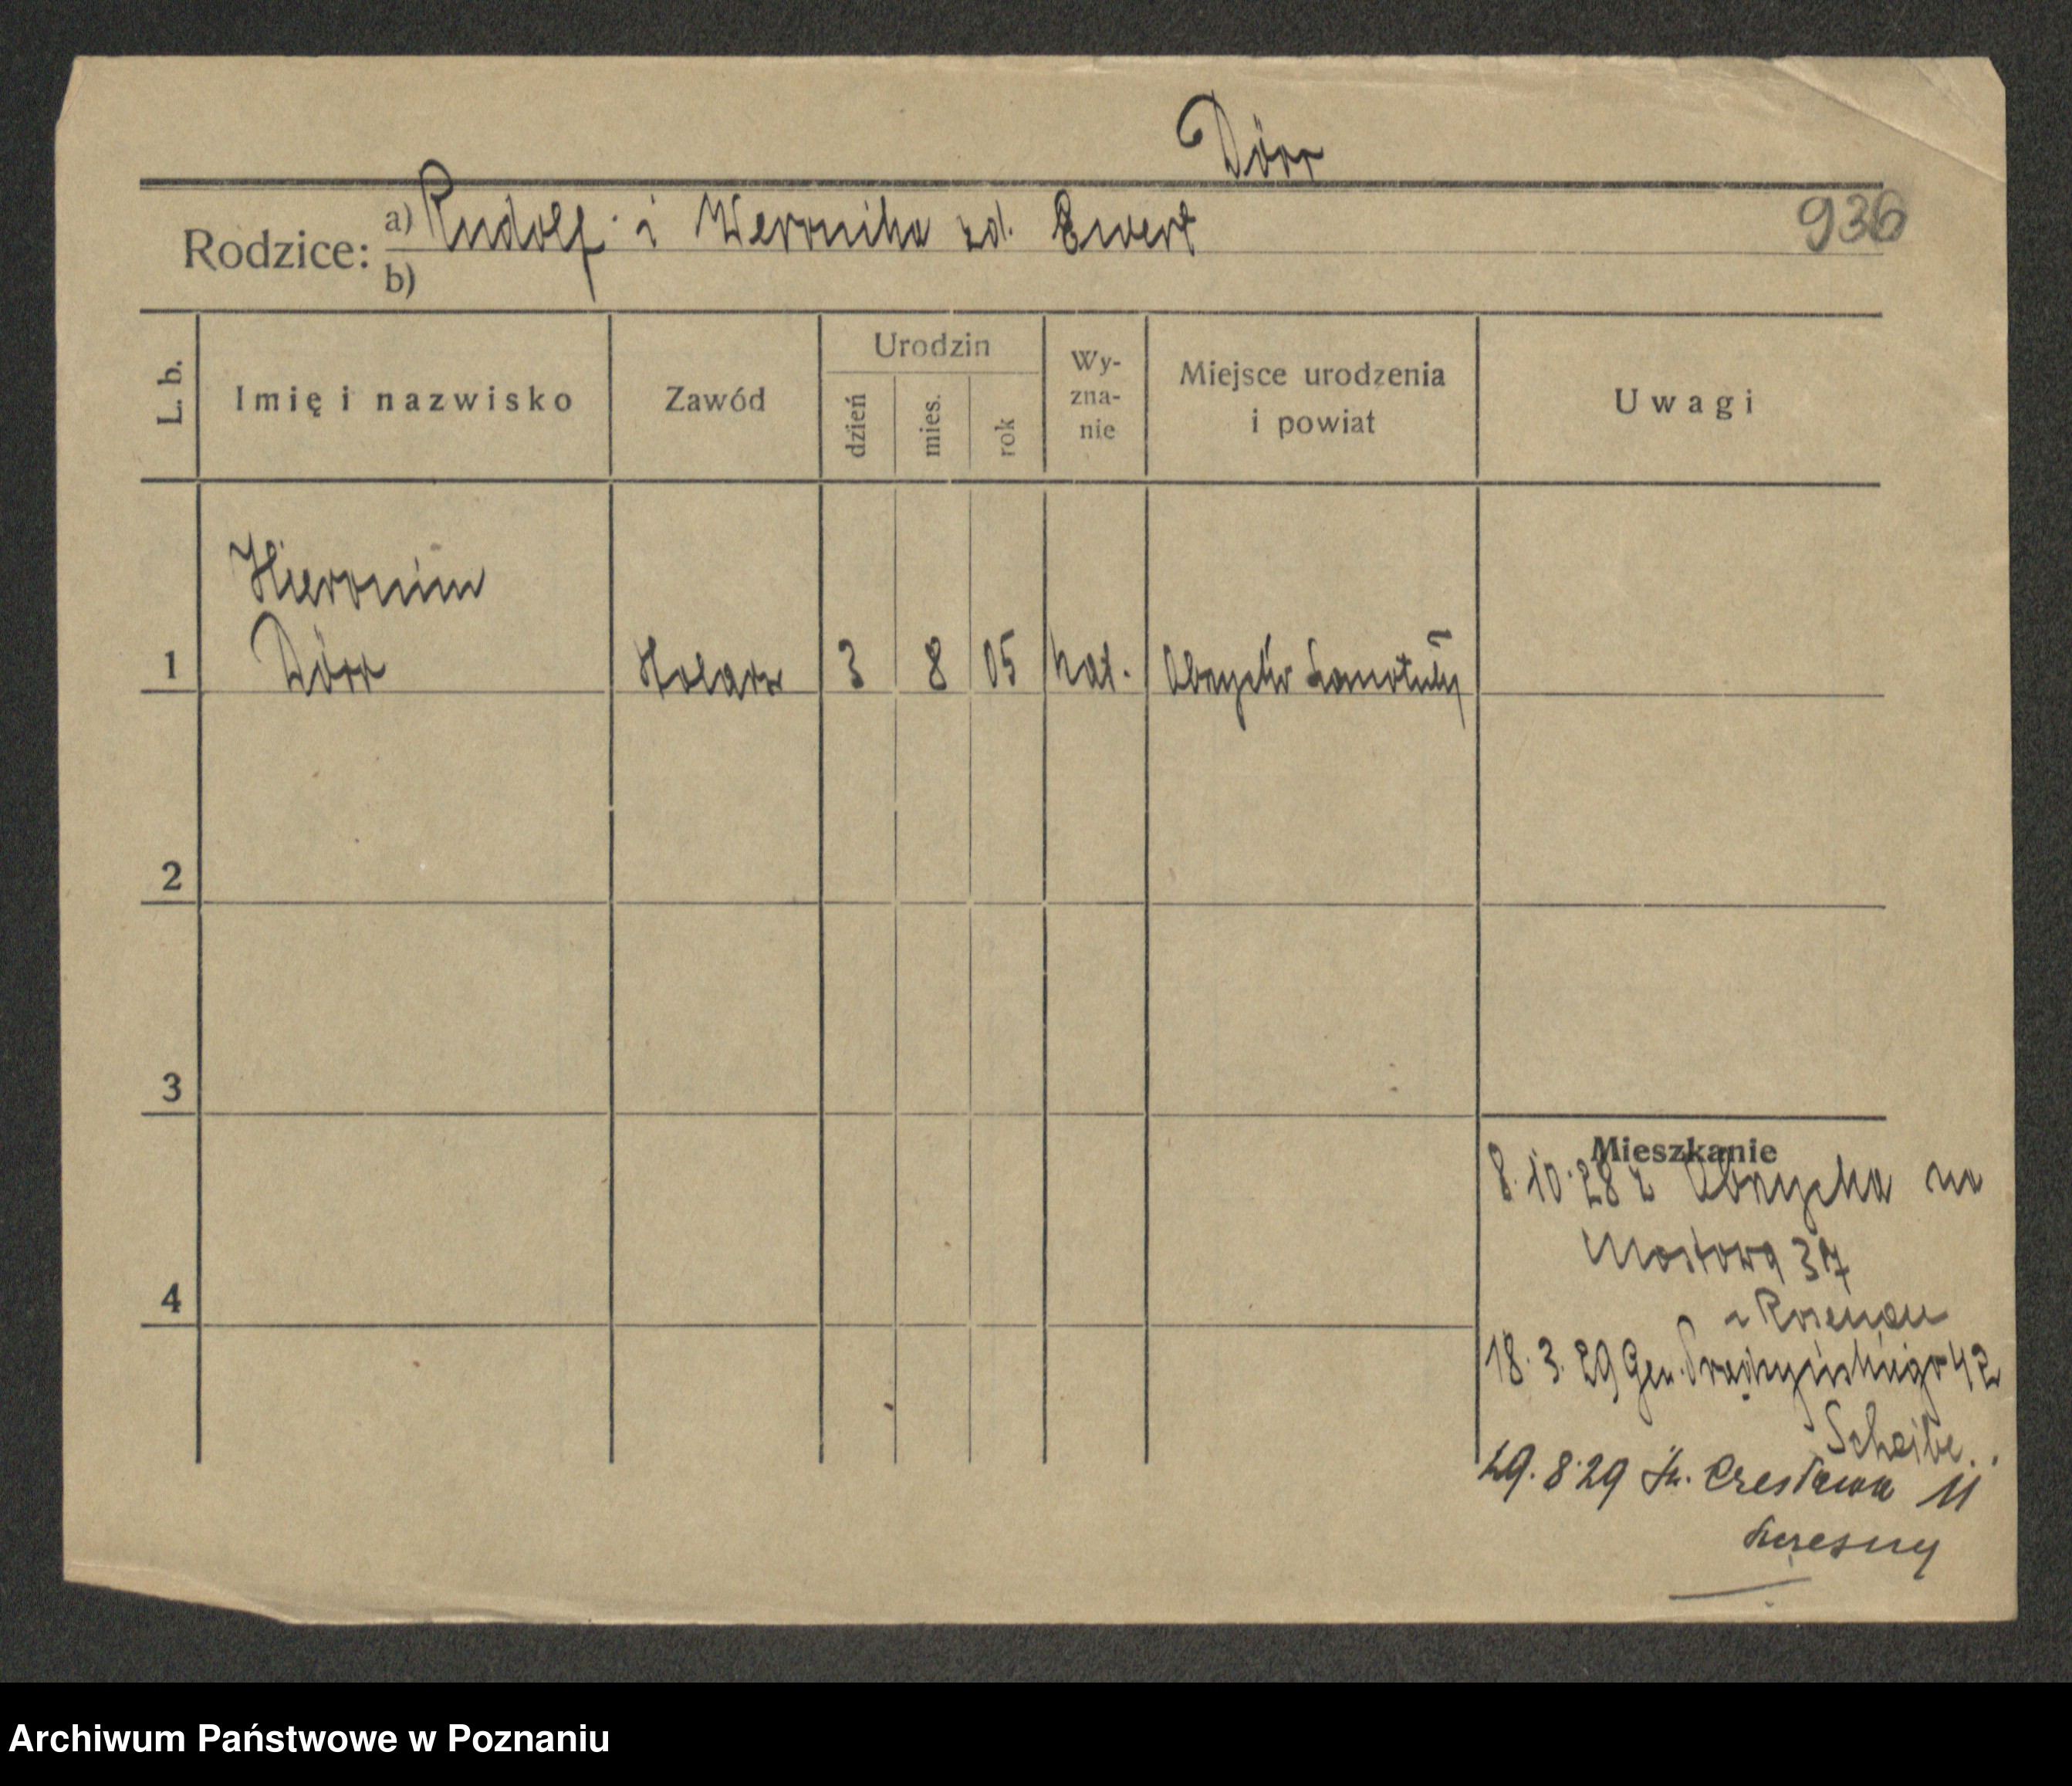 Dörr
936
Rodzice: a) Rudolf i Weronika zd. Ewert
b)
L. b. Imię i nazwisko Zawód Urodzin dzień mies. rok Wy-zna-nie Miejsce urodzenia i powiat Uwagi
Hieronim
1 Dörr 3 8 05 kat. Obrzycko Szamotuły
2
3
Mieszkanie
8.10.28 z Obrzycka na
Mostowa 37
4
18.3.29 Gen. Prądzyńskiego 42
Scheibe
29.8.29 Św. Czesława 11
Archiwum Państwowe w Poznaniu